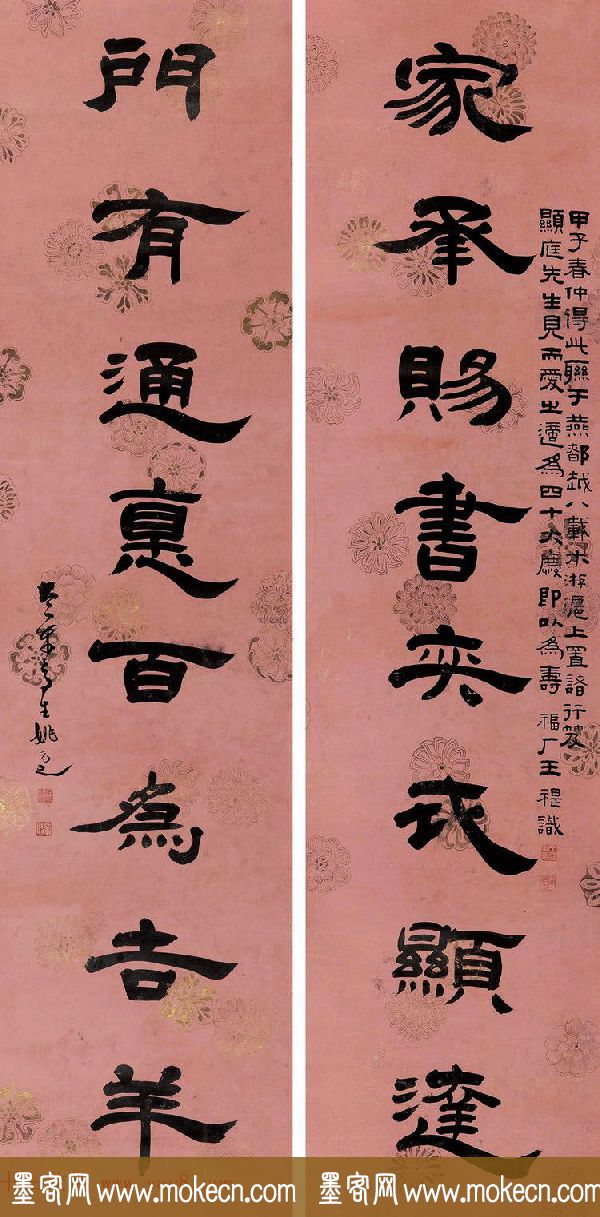 家承賜書奕代顯達
甲子春仲得此聯于燕都越八載來游滬上置諸行篋
顯庭先生見而愛之適為四十大慶即以為壽 福厂王禔識
門有通惪百為吉羊
竹葉亭生姚元之
墨客网 www.mokecn.com 墨客网 www.mokecn.com